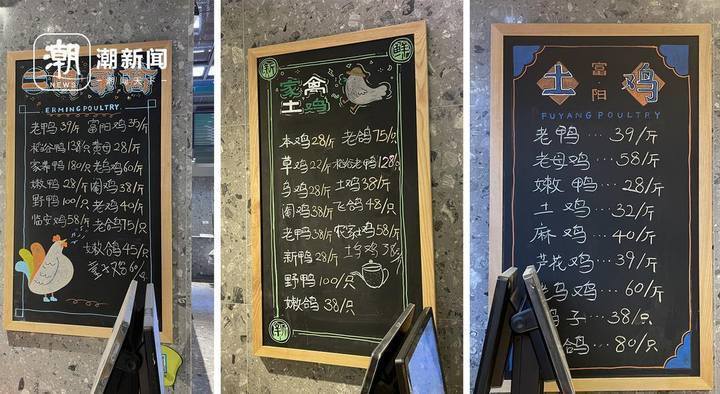 潮
NEWS
潮新闻
ERMING POULTRY
老鸭 39/斤 富阳鸡 35/斤
稻谷鸭 138只 麦母 28/斤
家养鸭 180/只 老乌鸡 60/斤
嫩鸭 28/斤 阉鸡 38/斤
野鸭 100/只 老鸡 40/斤
临安鸡 58/斤 老鸽 75/只
嫩鸽 45/只
土鸡 60
新
鲜
家禽
土鸡
本鸡 28/斤 老鸽 75/只
草鸡 22/斤 老鸭 128只
乌鸡 28/斤 土鸡 38/斤
阉鸡 38/斤 飞鸽 48/只
老鸭 38/斤 农家土鸡 58/斤
新鸭 28/斤 鸡 38/
野鸭 100/只
嫩鸽 38/只
土 富阳 鸡
FUYANG POULTRY
老鸭···39/斤
老母鸡···58/斤
嫩鸭···28/斤
土鸡···32/斤
麻鸡···40/斤
芦花鸡···39/斤
乌鸡···60/斤
子···38/只
鸽···80/只